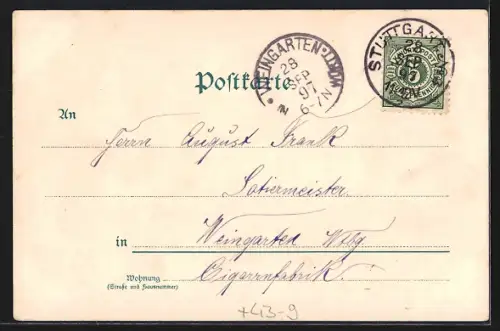 WEINGARTEN, WÜRTT.
28
SEP
97
6-7N
STUTTGART
28
SEP
97
Postkarte
An
Herrn August Frank
Satiermeister
in Weingarten Wtbg
Wohnung
(Straße und Hausnummer)
Cigarrnfabrik.
+413-9